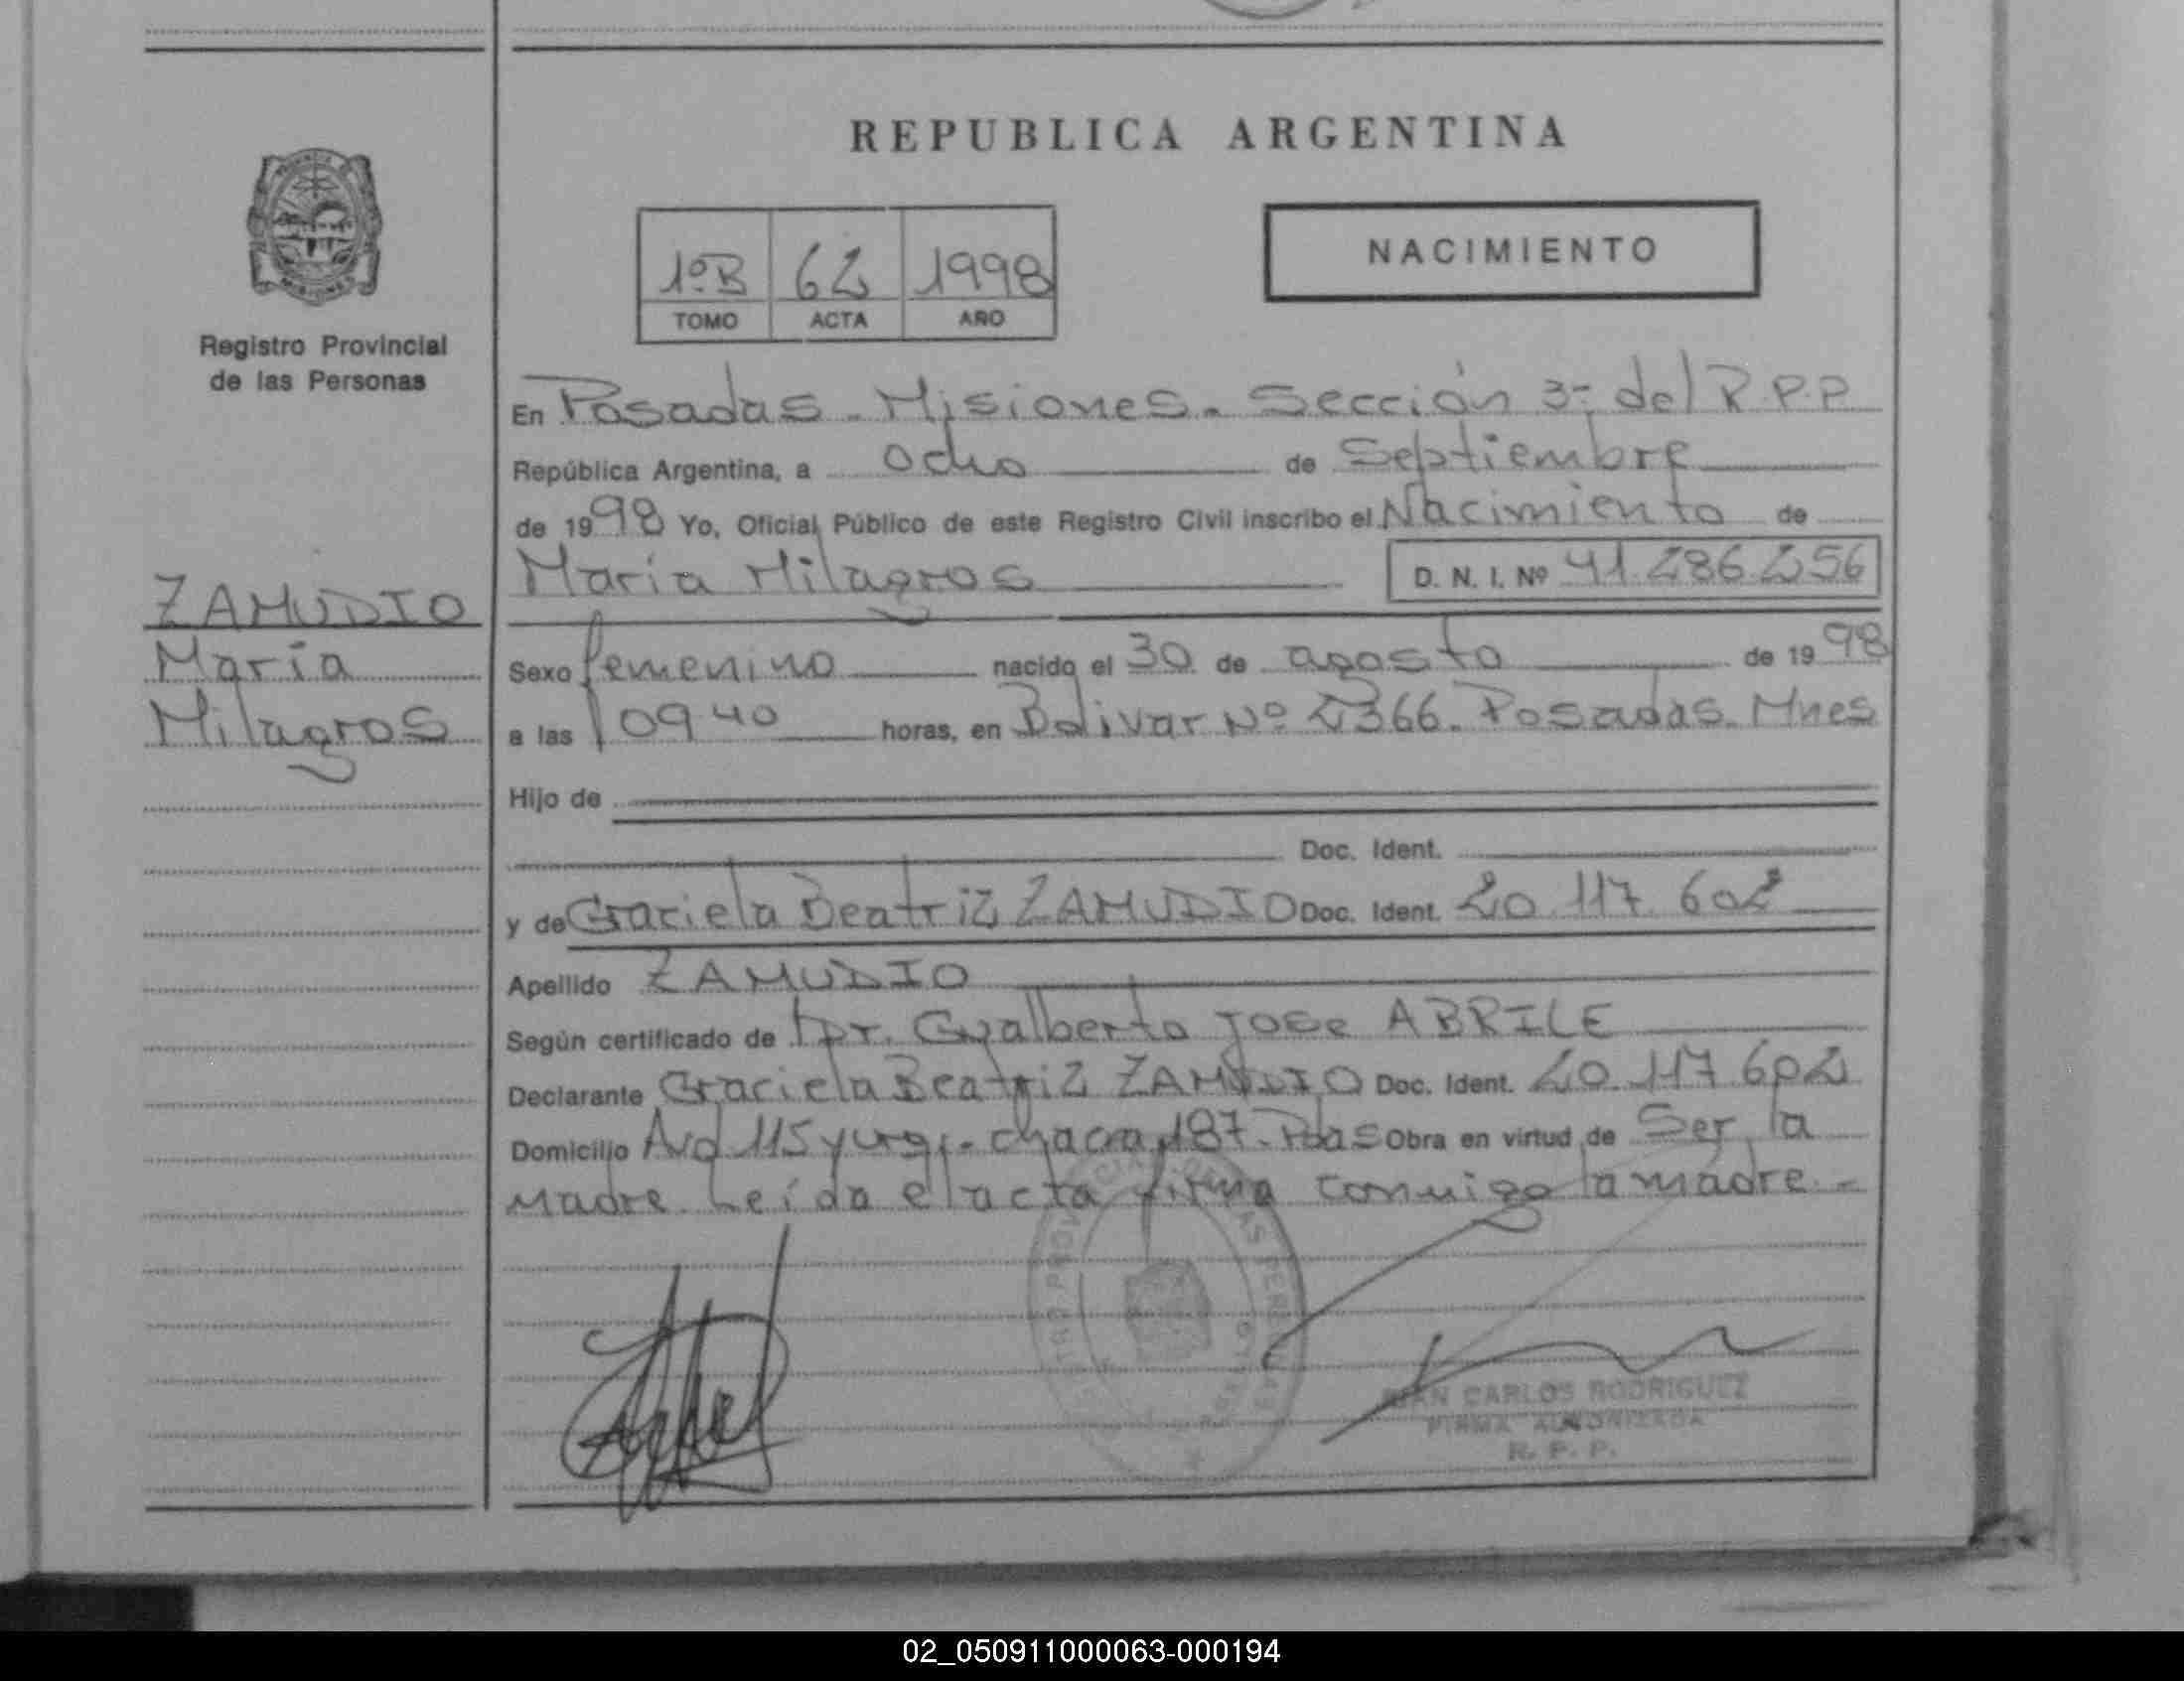 REPUBLICA ARGENTINA
NACIMIENTO
1ºB 62 1998
TOMO ACTA AÑO
Registro Provincial
de las Personas
ZAMUDIO
María
Milagros
En Posadas - Misiones - Sección 3ª del R.P.P
República Argentina, a Ocho de Septiembre
de 1998 Yo, Oficial Público de este Registro Civil inscribo el Nacimiento de
María Milagros D. N. I. Nº 41.286.256
Sexo femenino nacido el 30 de agosto de 1998
a las 09 40 horas, en Bolivar Nº 2366. Posadas. Mnes
Hijo de
Doc. Ident.
y de Graciela Beatriz ZAMUDIO Doc. Ident. 20.117.602
Apellido ZAMUDIO
Según certificado de Dr. Gualberto Jose ABRILE
Declarante Graciela Beatriz ZAMUDIO Doc. Ident. 20.117.602
Domicilio Avd 115 y chacra 187. Pdas Obra en virtud de Ser la
Madre. Leída el acta firma conmigo la madre.-
JUAN CARLOS RODRIGUEZ
FIRMA AUTORIZADA
R. P. P.
02_050911000063-000194